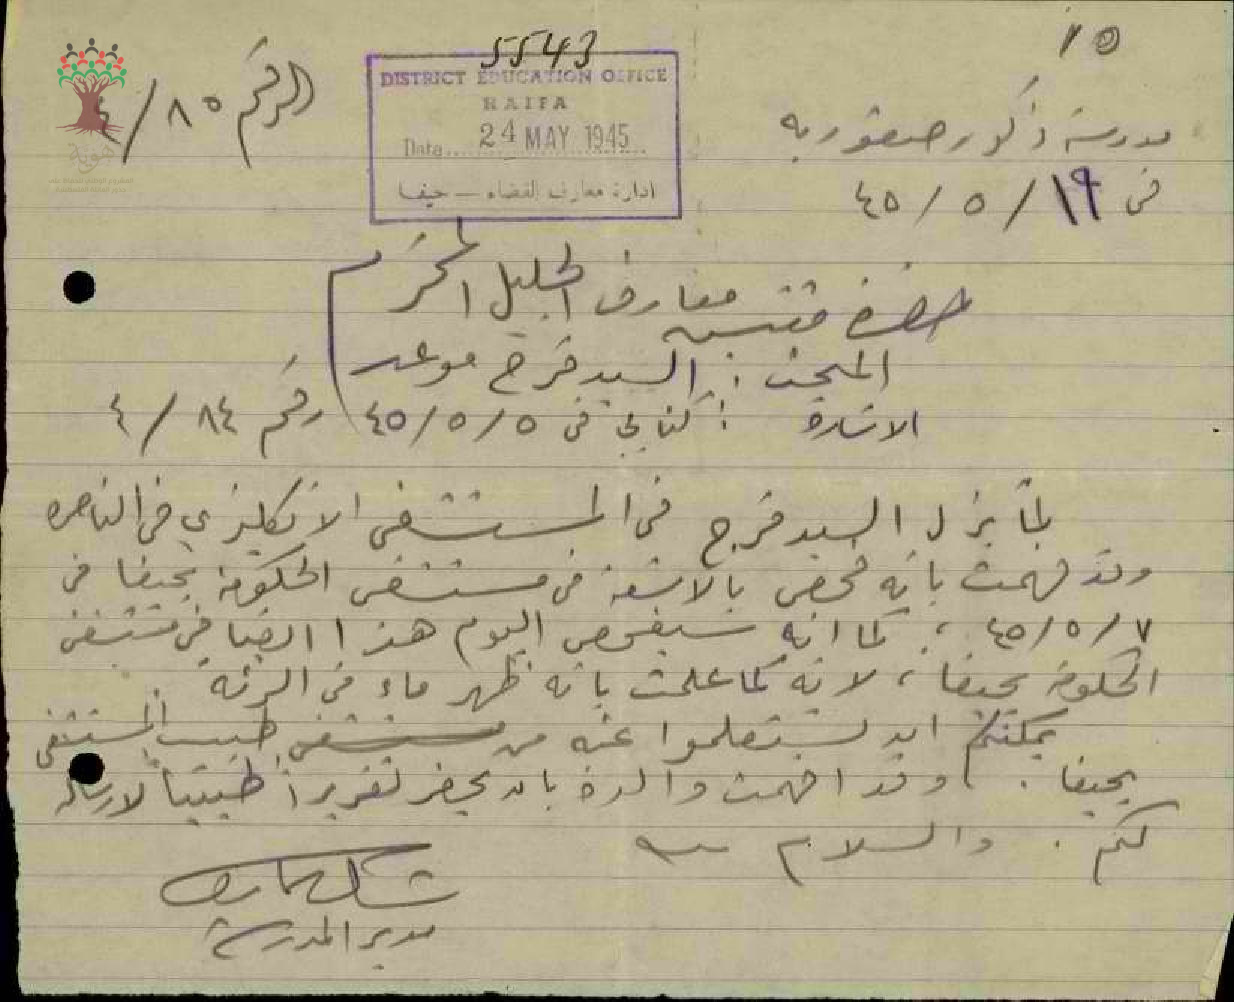 ١٥
5543
DISTRICT EDUCATION OFFICE
HAIFA
Date 24 MAY 1945
ادارة معارف القضاء — حيفا
الرقم ٨٥ / ٤
هوية
مدرسة ذكور صفوريه
في ١٩ / ٥ / ٤٥
حضرة مفتش معارف الجليل المحترم
المبحث : السيد فرج موعد
الاشارة : كتابي في ٥ / ٥ / ٤٥ رقم ٨٤ / ٤
لما يزل السيد فرج في المستشفى الانكليزي في الناصره
وقد فهمت بانه فحص بالاشعة في مستشفى الحكومة بحيفا في
٧ / ٥ / ٤٥ ، كما انه سيفحص اليوم هذا ايضا في مستشفى
الحكومة بحيفا ، لانه كما علمت بانه ظهر ماء في الرئة
يمكنكم ان تستعلموا عنه من مستشفى طبيب المستشفى
بحيفا . وقد افهمت والده بان يحضر تقريراً طبيباً لارساله
لكم . والسلام
مدير المدرسة